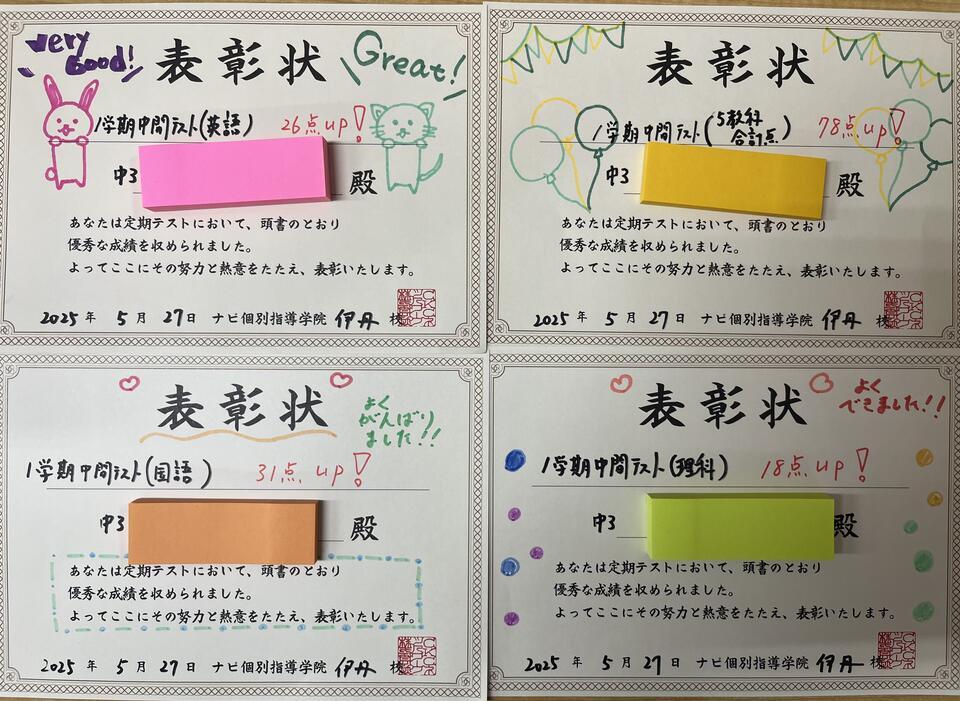 very Good!
表彰状
Great!
1学期中間テスト(英語) 26点up!
中3 殿
あなたは定期テストにおいて、頭書のとおり
優秀な成績を収められました。
よってここにその努力と熱意をたたえ、表彰いたします。
2025年 5月 27日 ナビ個別指導学院 伊丹 校
表彰状
1学期中間テスト(5教科合計点) 78点up!
中3 殿
あなたは定期テストにおいて、頭書のとおり
優秀な成績を収められました。
よってここにその努力と熱意をたたえ、表彰いたします。
2025年 5月 27日 ナビ個別指導学院 伊丹 校
表彰状
よく
がんばり
ました!!
1学期中間テスト(国語) 31点up!
中3 殿
あなたは定期テストにおいて、頭書のとおり
優秀な成績を収められました。
よってここにその努力と熱意をたたえ、表彰いたします。
2025年 5月 27日 ナビ個別指導学院 伊丹 校
表彰状
よく
できました!!
1学期中間テスト(理科) 18点up!
中3 殿
あなたは定期テストにおいて、頭書のとおり
優秀な成績を収められました。
よってここにその努力と熱意をたたえ、表彰いたします。
2025年 5月 27日 ナビ個別指導学院 伊丹 校